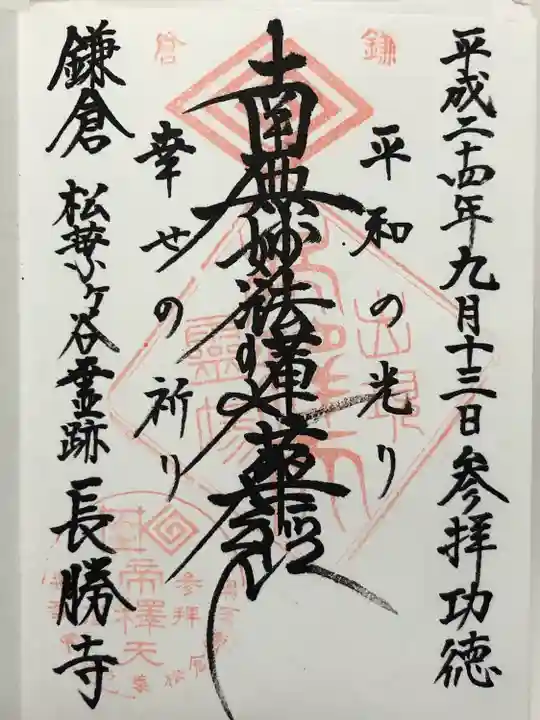 平成二十四年九月十三日参拝功徳
平和の光り
南無妙法蓮華経
幸せの祈り
鎌倉 松葉ヶ谷霊跡 長勝寺
鎌
倉
帝釋天
参拝